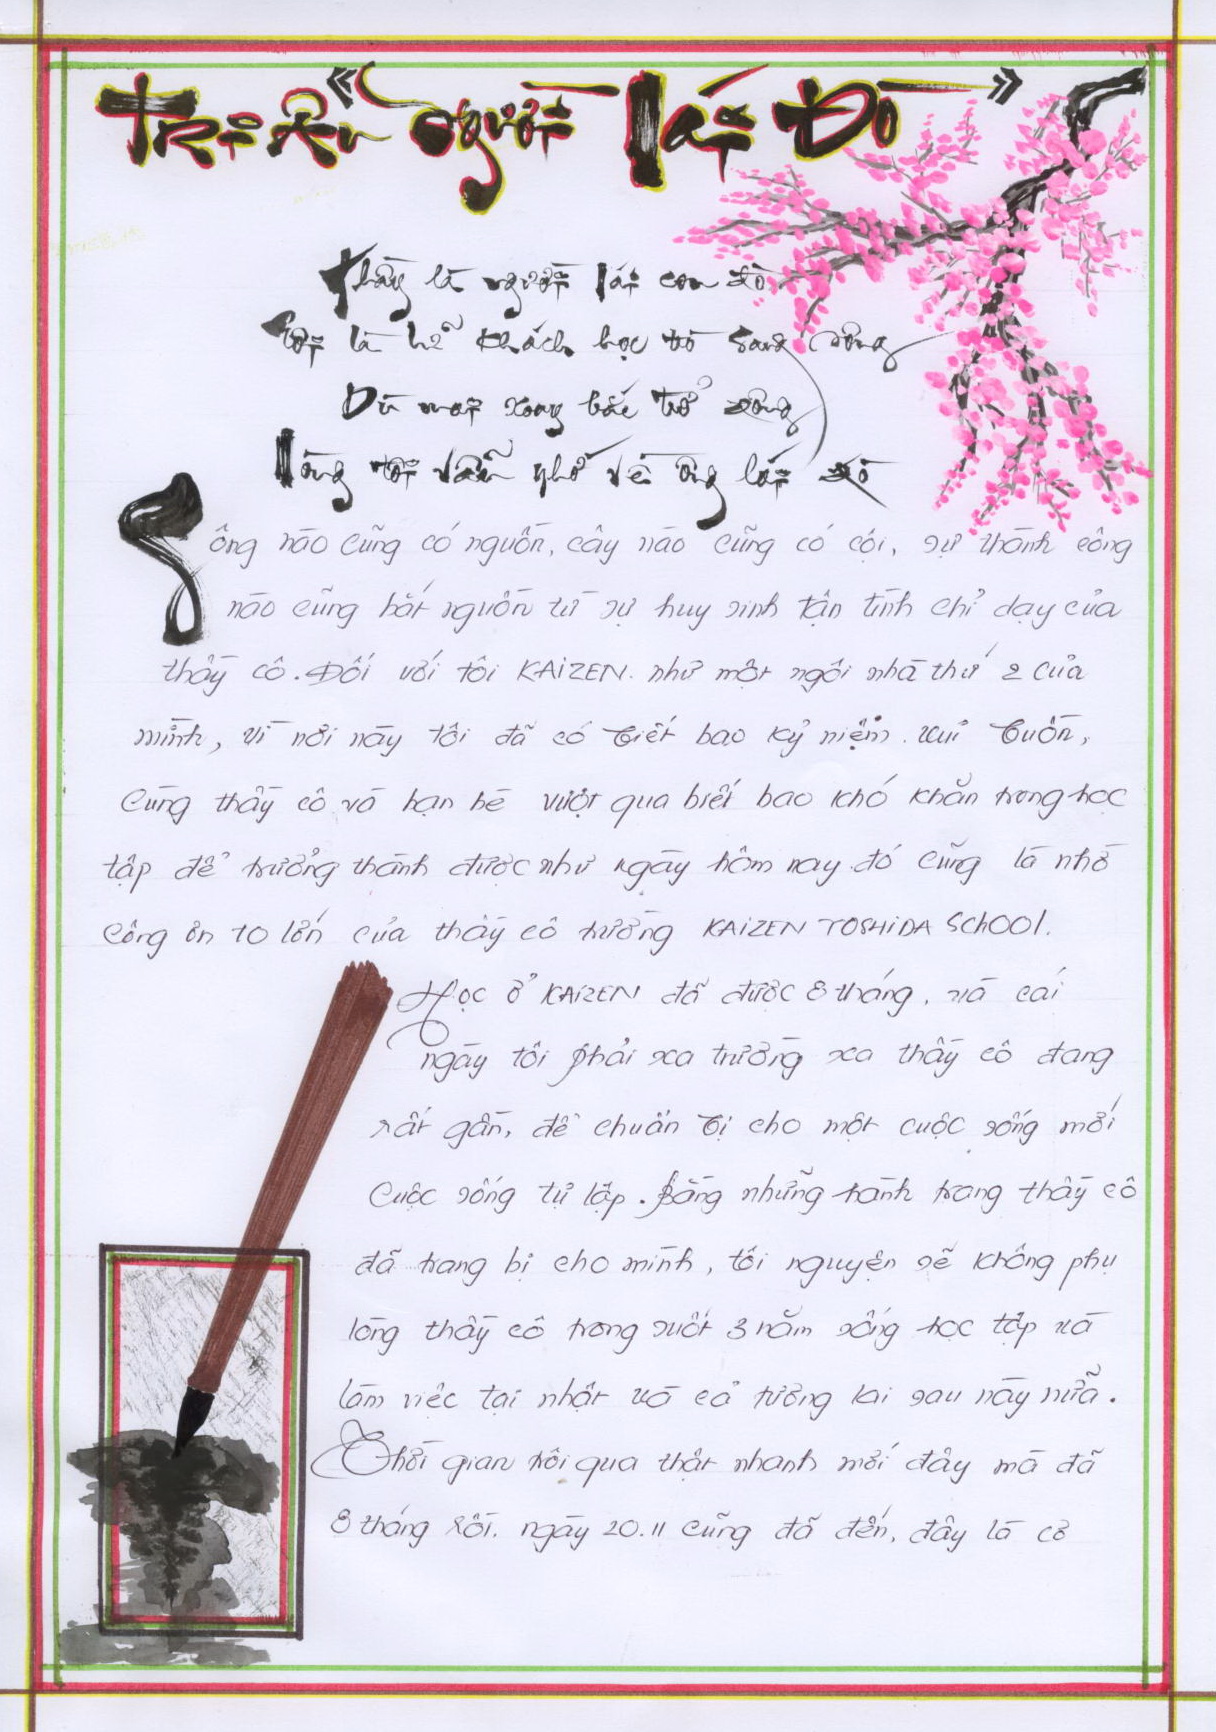 Tri Ân "Người lái Đò"
Thầy là người lái con đò
Tôi là lữ khách học trò sang sông
Dù mai xoay bấc trở đông
Lòng tôi vẫn nhớ về ông lái đò
Sông nào cũng có nguồn, cây nào cũng có cội, sự thành công
nào cũng bắt nguồn từ sự huy sinh tận tình chỉ dạy của
thầy cô. Đối với tôi KAIZEN. như một ngôi nhà thứ 2 của
mình, vì nơi này tôi đã có biết bao kỷ niệm vui buồn,
cùng thầy cô và bạn bè vượt qua biết bao khó khăn trong học
tập để trưởng thành được như ngày hôm nay đó cũng là nhờ
công ơn to lớn của thầy cô trường KAIZEN YOSHIDA SCHOOL.
Học ở KAIZEN đã được 8 tháng, và cái
ngày tôi phải xa trường xa thầy cô đang
rất gần, để chuẩn bị cho một cuộc sống mới
cuộc sống tự lập. Bằng những hành trang thầy cô
đã trang bị cho mình, tôi nguyện sẽ không phụ
lòng thầy cô trong suốt 3 năm sống học tập và
làm việc tại nhật và cả tương lai sau này nữa.
Thời gian trôi qua thật nhanh mới đây mà đã
8 tháng rồi. ngày 20.11 cũng đã đến, đây là cơ